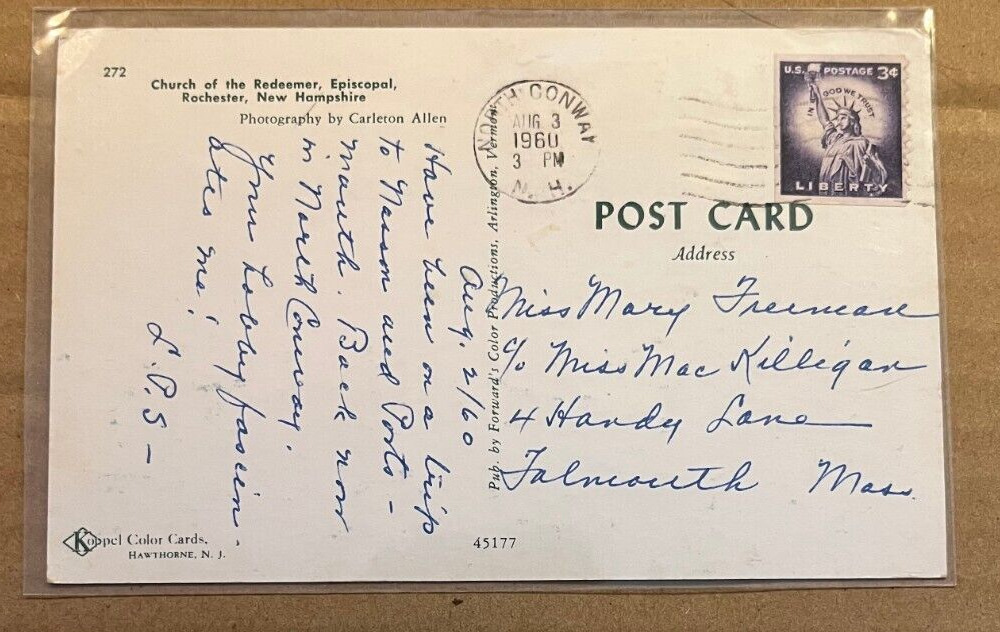 272
Church of the Redeemer, Episcopal,
Rochester, New Hampshire
Photography by Carleton Allen
Aug. 2/60
Have been on a trip
to Nasson and Ports-
mouth. Back now
in North Conway.
Your hobby fascin-
ates me!
L.P.S-
Koppel Color Cards,
HAWTHORNE, N. J.
Pub. by Forward's Color Productions, Arlington, Vermont
45177
NORTH CONWAY
AUG 3
1960
3 PM
N. H.
U.S. POSTAGE 3¢
IN GOD WE TRUST
LIBERTY
POST CARD
Address
Miss Mary Freeman
c/o Miss Mac Killigan
4 Handy Lane
Falmouth Mass.